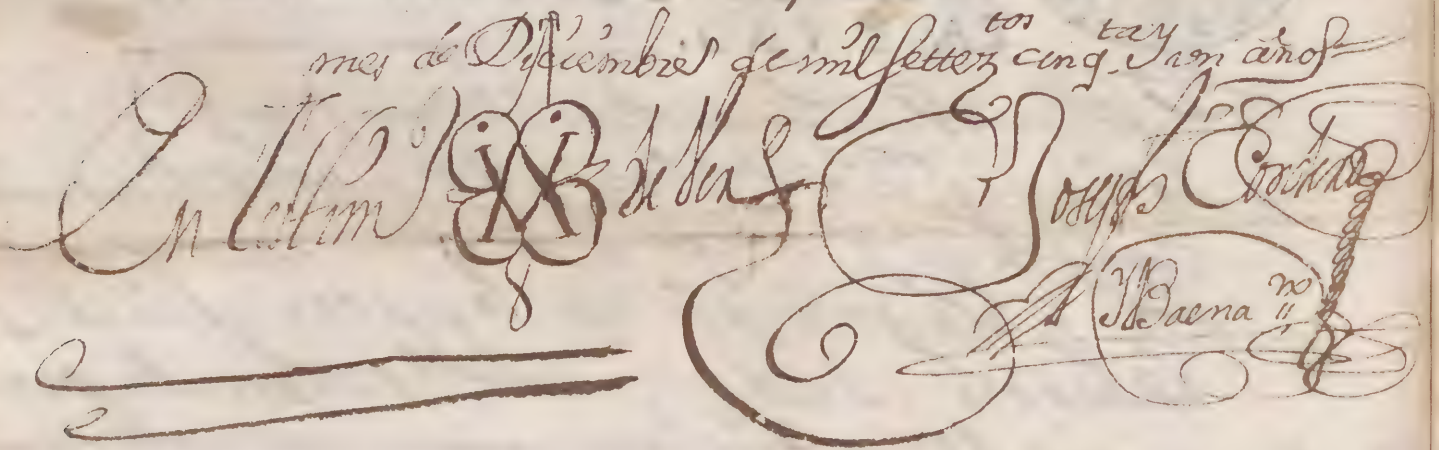 mes de Diziembre de mil settez.tos cinq.ta y un años
En testim.o de Verd Joseph Cordero
y Baena